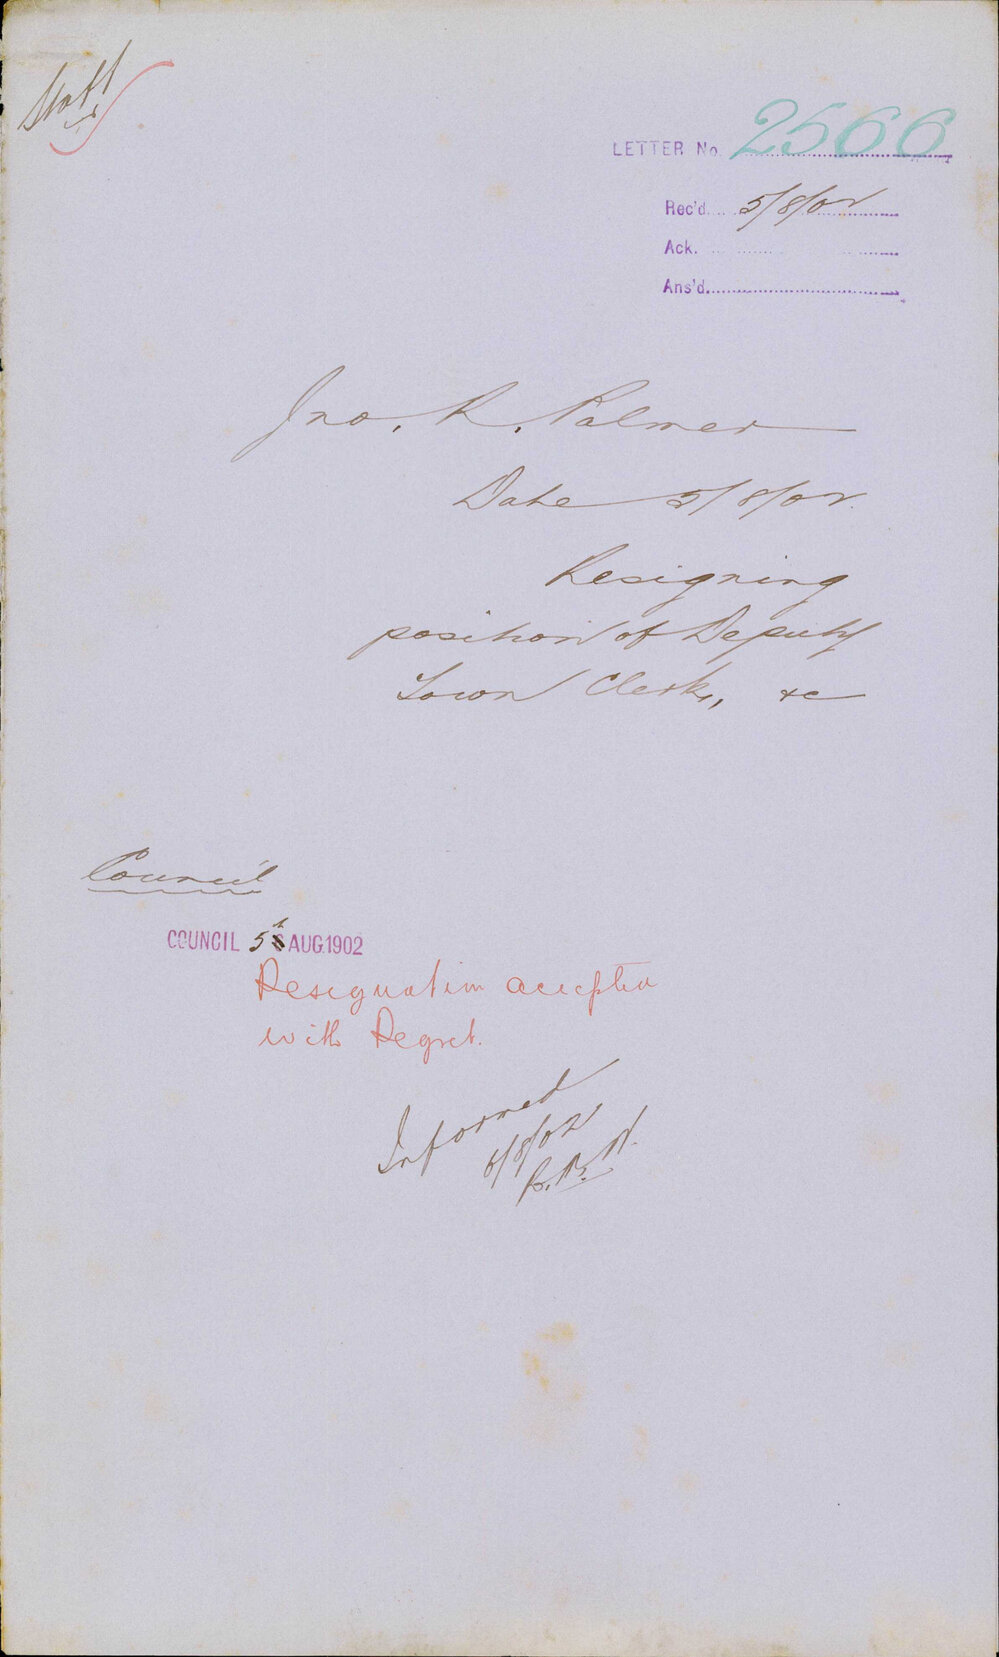 Staff
LETTER No. 2566
Rec'd. 5/8/02
Ack.
Ans'd.
Jno. R. Palmer
Date 5/8/02.
Resigning
position of Deputy
Town Clerk, &c
Council
COUNCIL 5th AUG. 1902
Resignation accepted
with Regret.
Informed
6/8/02